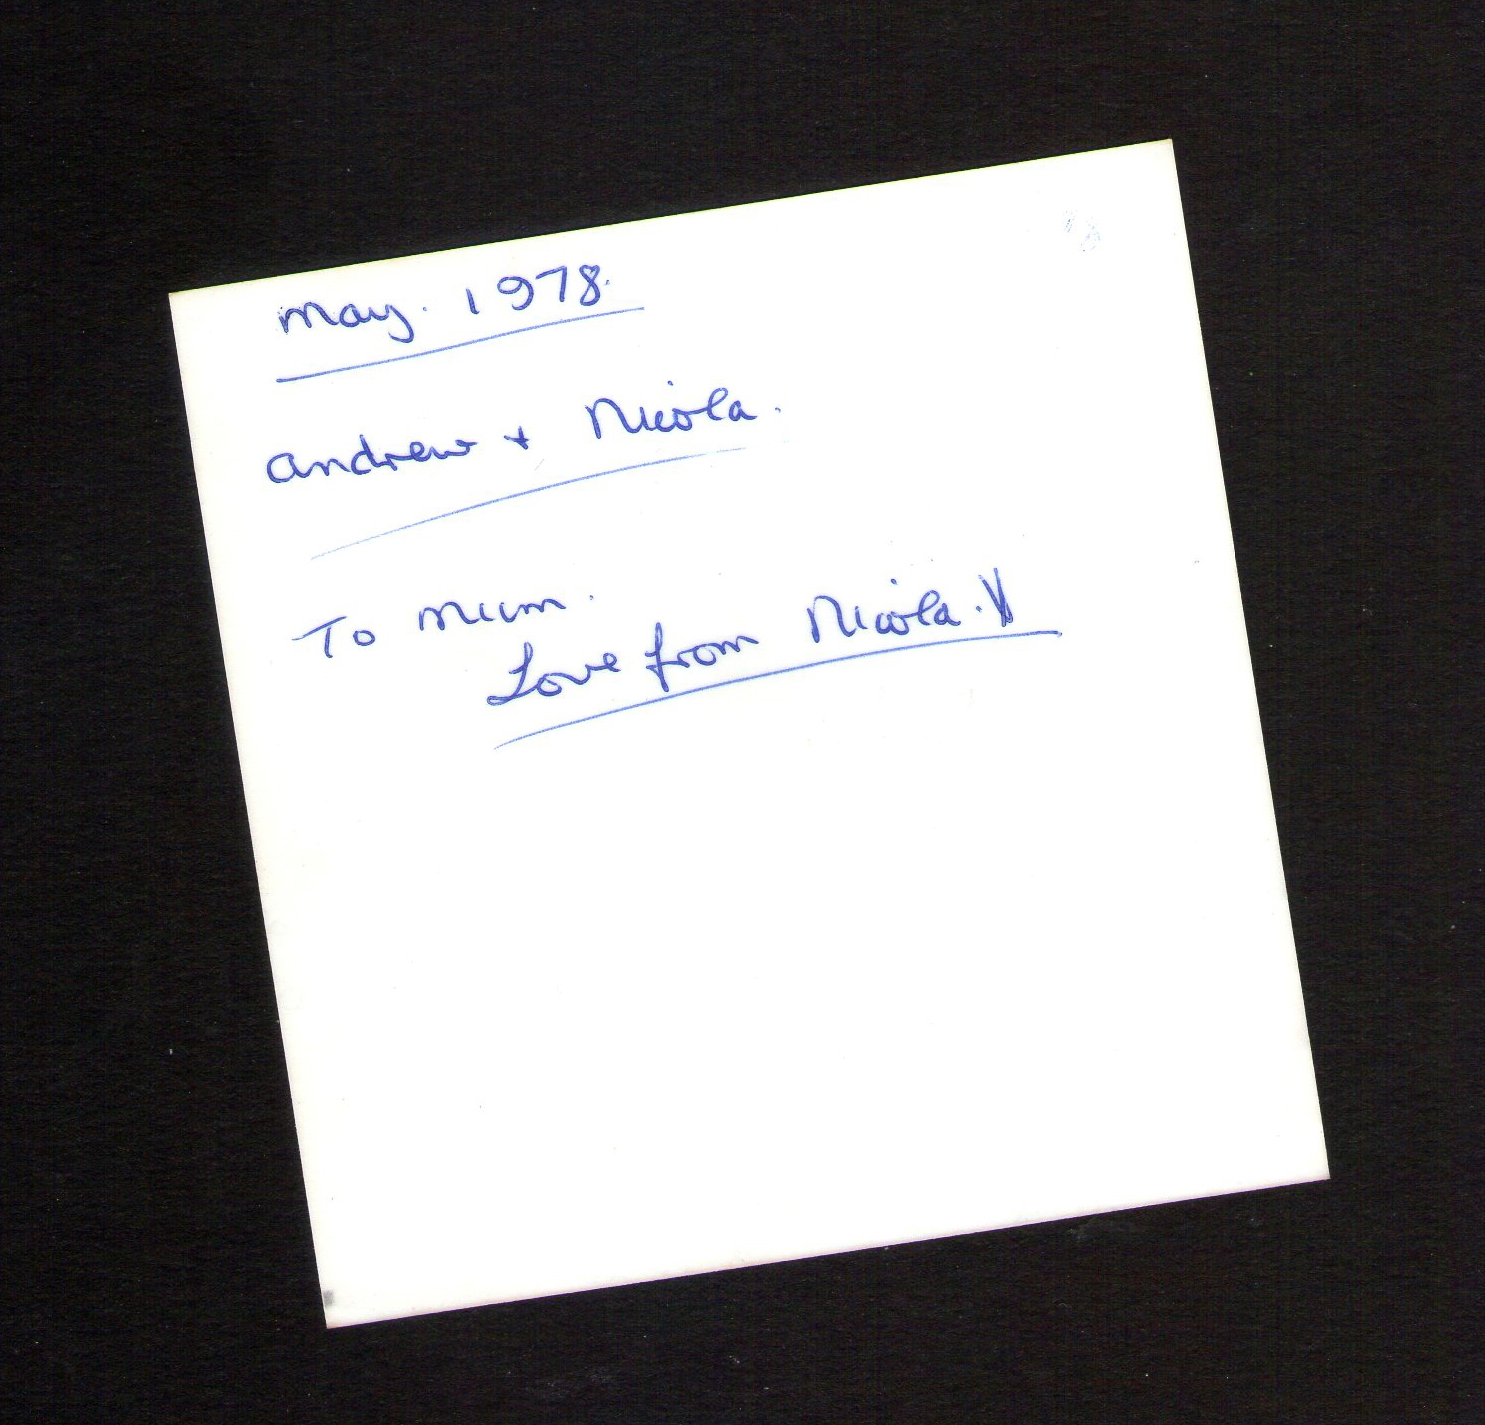 May. 1978.
Andrew + Nicola.
To Mum.
Love from Nicola.